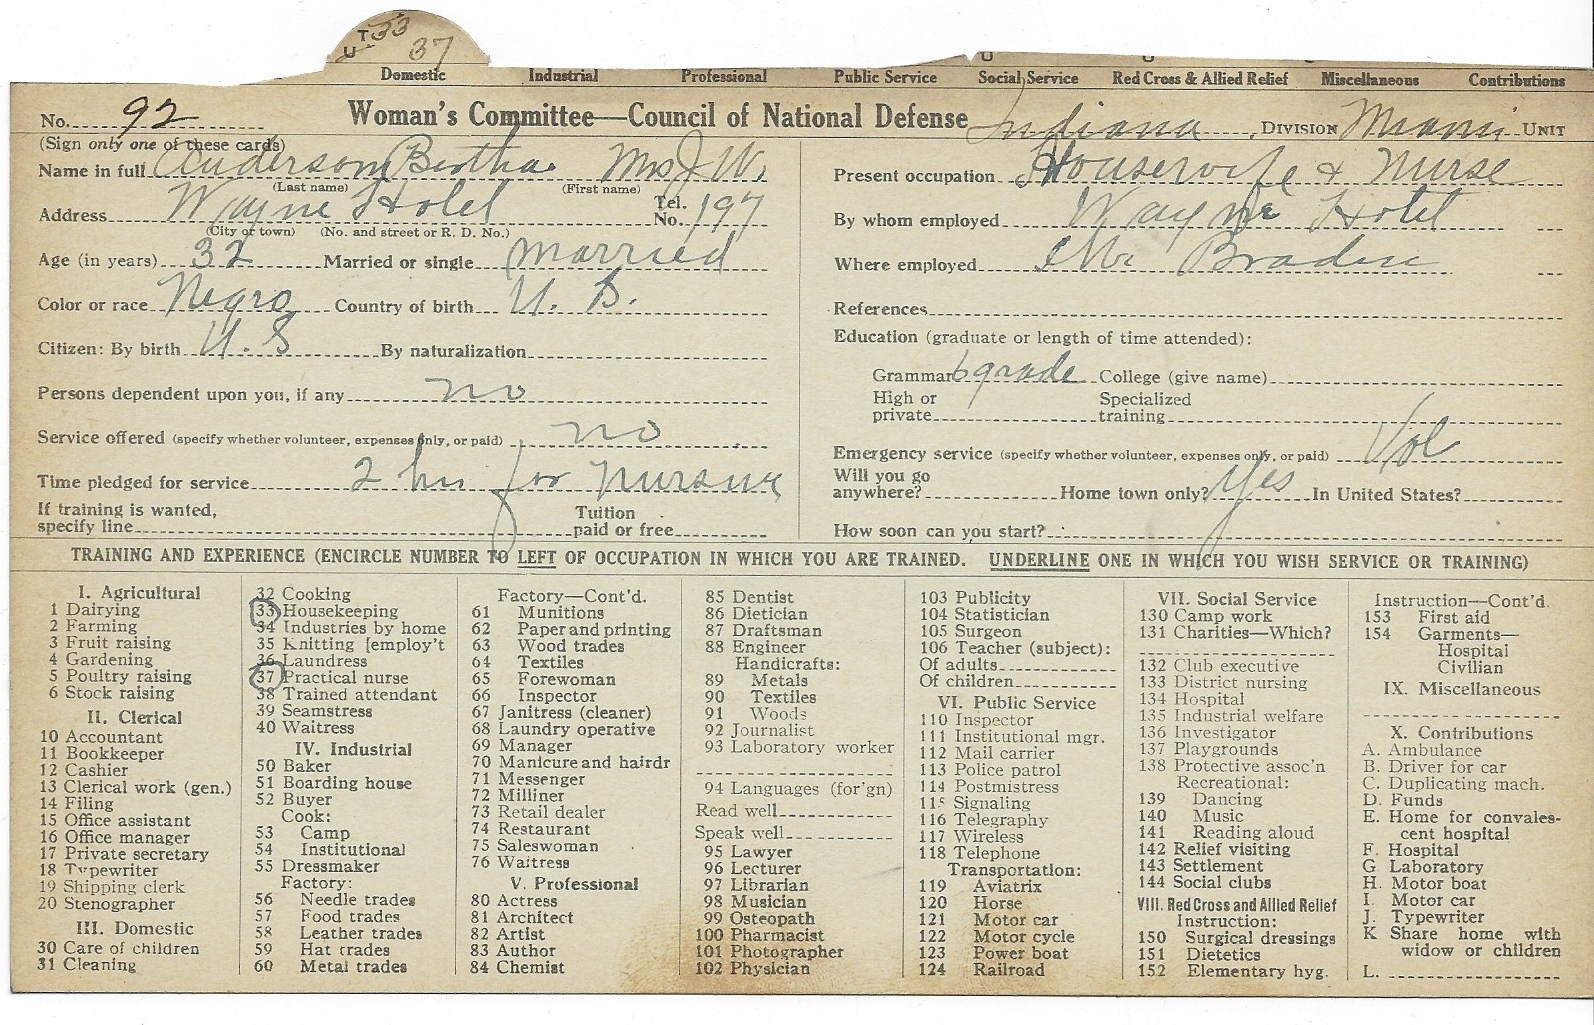 T 33
U 37
Domestic Industrial Professional Public Service Social Service Red Cross & Allied Relief Miscellaneous Contributions
No. 92 Woman's Committee—Council of National Defense Indiana DIVISION Miami UNIT
(Sign only one of these cards)
Name in full Anderson Bertha Mrs J. W.
(Last name) (First name)
Address Wayne Hotel Tel. No. 197
(City or town) (No. and street or R. D. No.)
Age (in years) 32 Married or single married
Color or race Negro Country of birth U. S.
Citizen: By birth U. S By naturalization
Persons dependent upon you, if any no
Service offered (specify whether volunteer, expenses only, or paid) no
Time pledged for service 2 hrs for nursing
If training is wanted,
specify line Tuition
paid or free
Present occupation Housewife & Nurse
By whom employed Wayne Hotel
Where employed Braden
References
Education (graduate or length of time attended):
Grammar 6 grade College (give name)
High or
private Specialized
training
Emergency service (specify whether volunteer, expenses only, or paid) Vol
Will you go
anywhere? Home town only? Yes In United States?
How soon can you start?
TRAINING AND EXPERIENCE (ENCIRCLE NUMBER TO LEFT OF OCCUPATION IN WHICH YOU ARE TRAINED. UNDERLINE ONE IN WHICH YOU WISH SERVICE OR TRAINING)
I. Agricultural
1 Dairying
2 Farming
3 Fruit raising
4 Gardening
5 Poultry raising
6 Stock raising
II. Clerical
10 Accountant
11 Bookkeeper
12 Cashier
13 Clerical work (gen.)
14 Filing
15 Office assistant
16 Office manager
17 Private secretary
18 Typewriter
19 Shipping clerk
20 Stenographer
III. Domestic
30 Care of children
31 Cleaning
32 Cooking
33 Housekeeping
34 Industries by home
35 Knitting [employ't
36 Laundress
37 Practical nurse
38 Trained attendant
39 Seamstress
40 Waitress
IV. Industrial
50 Baker
51 Boarding house
52 Buyer
Cook:
53 Camp
54 Institutional
55 Dressmaker
Factory:
56 Needle trades
57 Food trades
58 Leather trades
59 Hat trades
60 Metal trades
Factory—Cont'd.
61 Munitions
62 Paper and printing
63 Wood trades
64 Textiles
65 Forewoman
66 Inspector
67 Janitress (cleaner)
68 Laundry operative
69 Manager
70 Manicure and hairdr
71 Messenger
72 Milliner
73 Retail dealer
74 Restaurant
75 Saleswoman
76 Waitress
V. Professional
80 Actress
81 Architect
82 Artist
83 Author
84 Chemist
85 Dentist
86 Dietician
87 Draftsman
88 Engineer
Handicrafts:
89 Metals
90 Textiles
91 Woods
92 Journalist
93 Laboratory worker
94 Languages (for'gn)
Read well
Speak well
95 Lawyer
96 Lecturer
97 Librarian
98 Musician
99 Osteopath
100 Pharmacist
101 Photographer
102 Physician
103 Publicity
104 Statistician
105 Surgeon
106 Teacher (subject):
Of adults
Of children
VI. Public Service
110 Inspector
111 Institutional mgr.
112 Mail carrier
113 Police patrol
114 Postmistress
115 Signaling
116 Telegraphy
117 Wireless
118 Telephone
Transportation:
119 Aviatrix
120 Horse
121 Motor car
122 Motor cycle
123 Power boat
124 Railroad
VII. Social Service
130 Camp work
131 Charities—Which?
132 Club executive
133 District nursing
134 Hospital
135 Industrial welfare
136 Investigator
137 Playgrounds
138 Protective assoc'n
Recreational:
139 Dancing
140 Music
141 Reading aloud
142 Relief visiting
143 Settlement
144 Social clubs
VIII. Red Cross and Allied Relief
Instruction:
150 Surgical dressings
151 Dietetics
152 Elementary hyg.
Instruction—Cont'd.
153 First aid
154 Garments—
Hospital
Civilian
IX. Miscellaneous
X. Contributions
A. Ambulance
B. Driver for car
C. Duplicating mach.
D. Funds
E. Home for convales-
cent hospital
F. Hospital
G Laboratory
H. Motor boat
I. Motor car
J. Typewriter
K Share home with
widow or children
L.